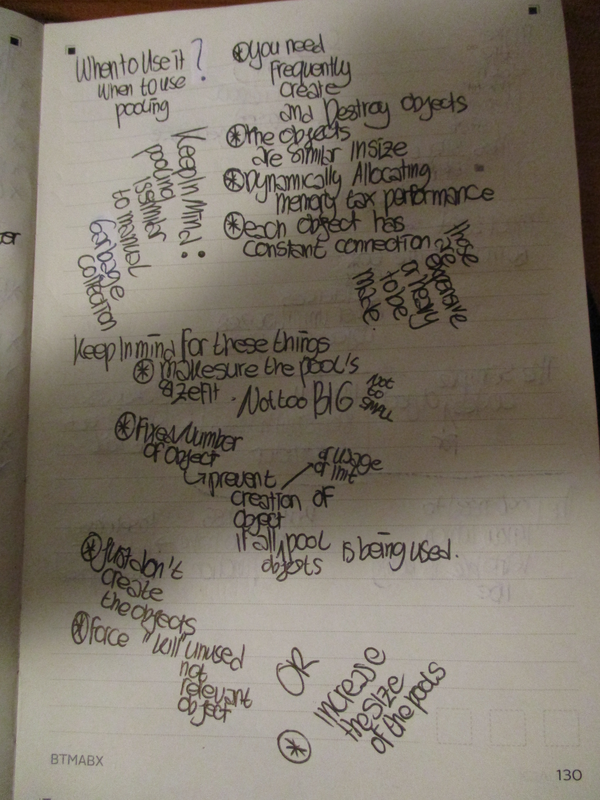 When to Use it ?
When to use
pooling
* you need
frequently
create
and Destroy objects
* the objects
are similar In size
* Dynamically Allocating
memory tax performance
* each object has
constant connection
those
are
expensive
or heavy
to be
made.
Keep In Mind :
pooling
is similar
to manual
Garbage
Collection
Keep In mind For these things
* make sure the pool's
size fit . Not too BIG
not
to
small
* Fixed Number
of Object
prevent
creation of
object
or usage
or init
if all pool
objects
is being used.
* Just don't
create
the objects
* force "kill" unused
not
relevant
object
OR
* Increase
the size
of the pools
BTMABX
130